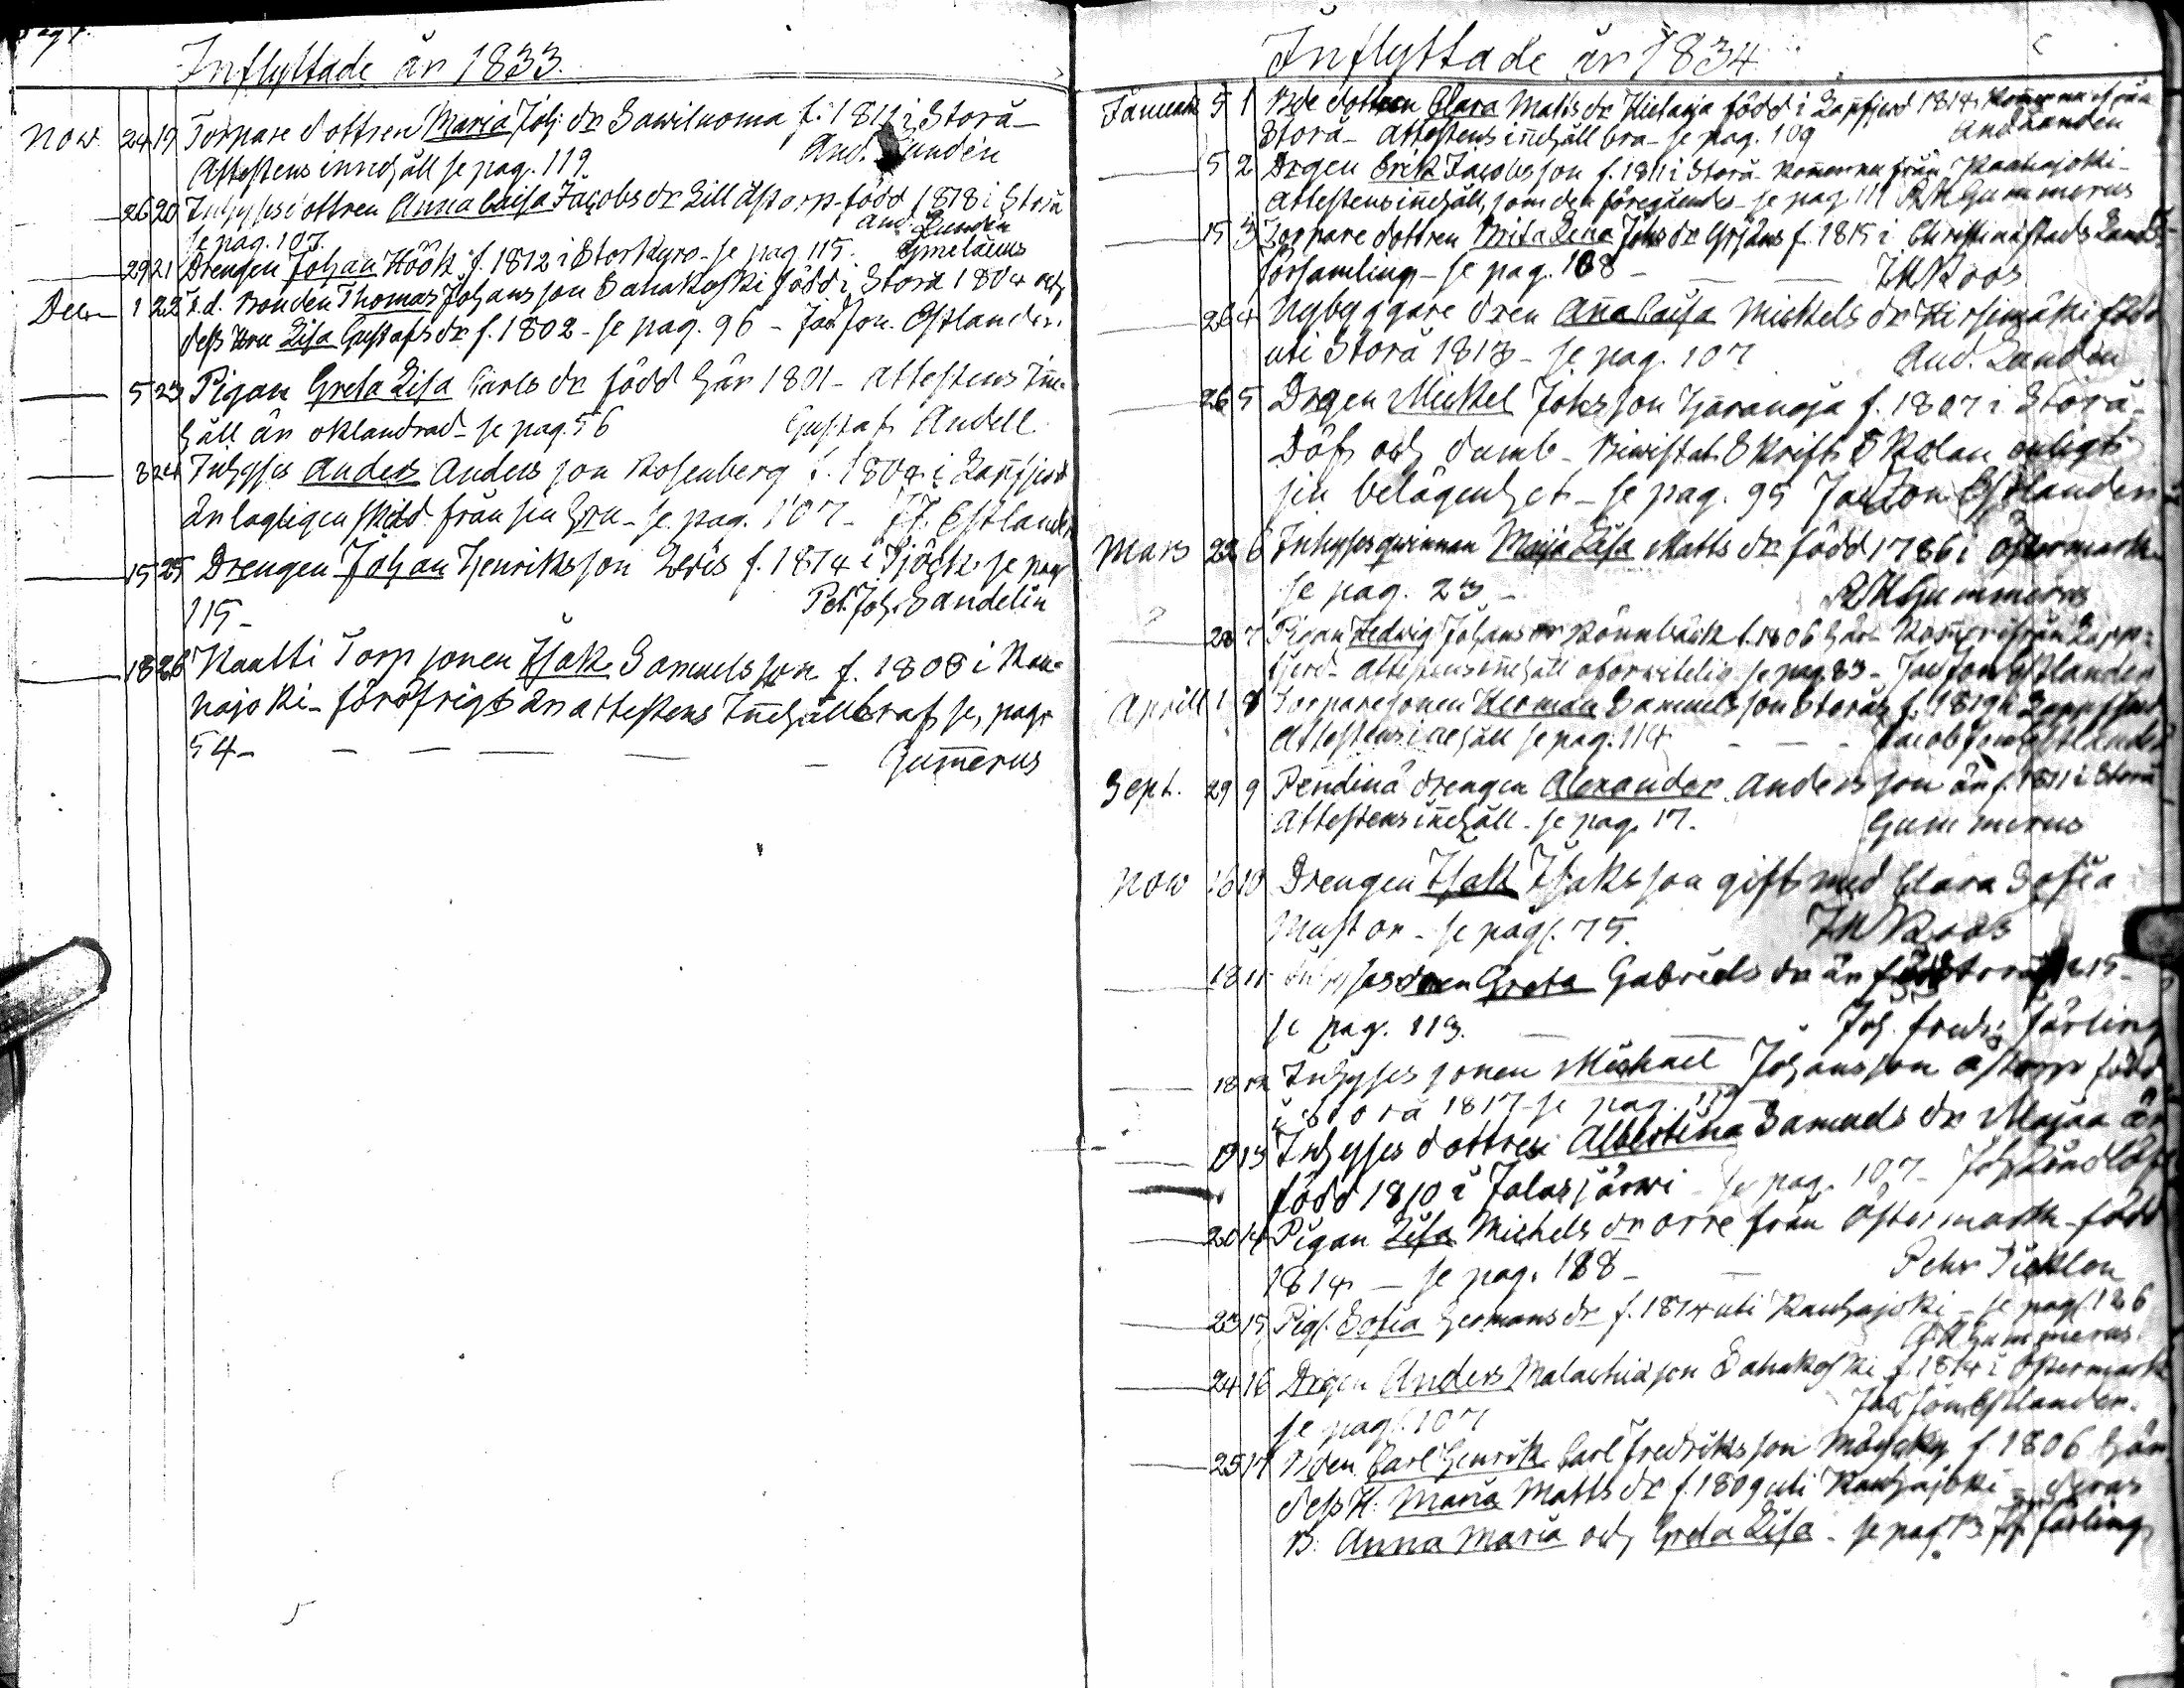 Inflyttade år 1833.
Now 24 19 Torpare dottren Maria Joh: dr Sawiluoma f. 1811 i Storå
Attestens innehåll se pag. 119. And. Lundén
26 20 Inhyses dottren Anna Caisa Jacobs dr Lill Åstorp född 1818 i Storå
se pag. 107. And Lundén
29 21 Drengen Johan Höök f. 1812 i Storkyro - se pag 115.
Decem 1 22 F.d. Bonden Thomas Johansson Sahakoski född i Storå 1804 och
dess Hru Lisa Gustafs dr f. 1802 - se pag. 96 - Jac Jon. Estlander.
5 23 Pigan Greta Lisa Carls dr född här 1801 - Attestens Inne
håll är oklandrad - se pag. 56 Gustaf Andell
8 24 Inhyses Anders Andersson Rosenberg f. 1804 i Lappfjerd
är lagligen skild från sin hru - se pag. 107 - J.J. Estlander
15 25 Drengen Johan Henriksson Leris f. 1814 i Tjöck - se pag
115 - Pet. Joh. Sandelin
18 26 Knatti Torp sonen Isak Samuelsson f. 1808 i Kau
hajoki - för öfrigt är attestens Innehåll braf se, pag.
54 - Gumerus
Inflyttade år 1834
Januari 5 1 Bde dottren Clara Matts dr Hietaoja född i Lappfjerd 1814 Kommen ifrån
Storå - Attestens innehåll bra - se pag. 109 And Lundén
15 2 Drgen Erik Jacobsson f. 1811 i Storå - kommen från Kauhajoki -
Attestens innehåll, som den föregåendes - se pag. 111 Gummerus
15 3 Torpare dottren Brita Lena Johs dr Gröäns f. 1815 i Christinæstads Lands
församling - se pag. 108 - Roos
26 4 Nybyggare dren Anna Caisa Mickels dr Hirsimäki född
uti Storå 1813 - se pag. 107 And. Lundén
26 5 Drgen Mickel Johsson Haranoja f. 1807 i Storå -
Döf och dumb - Biwistat Skrift Skolan enligt
sin belägenhet - se pag. 95 Jac Jon Estlander
Mars 22 6 Inhyses qwinnan Maja Lisa Matts dr född 1786 i Östermark
se pag. 23 - Gummerus
28 7 Pigan Hedwig Johans dr Rönnbäck f. 1806 här Kommen från Lapp=
fjerd - attestens innehåll oförwitelig - se pag. 83 - Jac Jon Estlander
Aprill 1 8 Torparesonen Herman Samuelsson Storås f. 1819 i Lappfjerd
Attestens innehåll se pag. 114 - Jacob Jon Estlander
Sept. 29 9 Pendinä drengen Alexander Andersson är f. 1811 i Storå
Attestens innehåll - se pag. 17. Gummerus
Now 16 10 Drengen Isak Isaksson gift med Clara Sofia
Mustor - se pag. 75. Roos
18 11 Inhysesdren Greta Gabriels dr är född
se pag. 113. Joh. Fredr Färling
18 12 Inhyses sonen Michael Johansson Åstorp född
i Storå 1817 - se pag.
19 13 Inhyses dottren Albertina Samuels dr Alajaa är
född 1810 i Jalasjärwi - se pag. 107 -
20 14 Pigan Lisa Michels dr Orre från Östermark - född
1814 - se pag. 188 - Pehr Ticklen
23 15 Pig. Sofia Hermans dr f. 1814 uti Kauhajoki - se pag. 126
Gummerus
24 16 Drgen Anders Malachiasson Sahakoski f. 1814 i Östermark
se pag. 107 Jac Jon Estlander.
25 17 Bden Carl Henrik Carl Fredriksson f. 1806 här
dess H: Maria Matts dr f. 1809 uti Kauhajoki - deras
B: Anna Maria och Greta Lisa - se pag. Färling